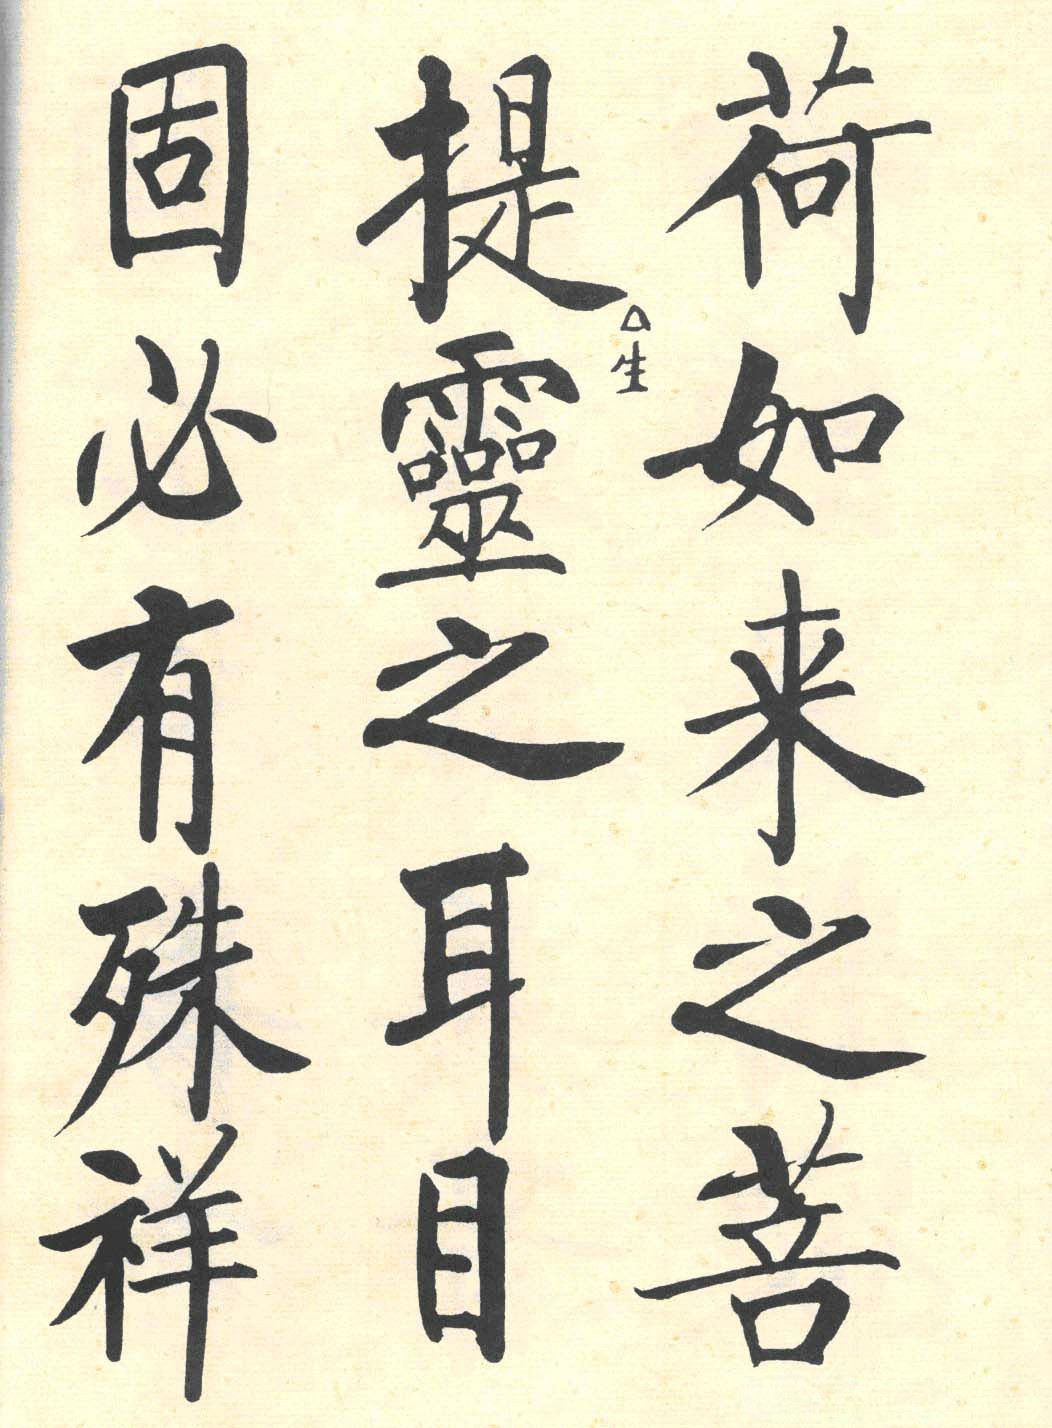 荷如来之菩
提生靈之耳目
固必有殊祥